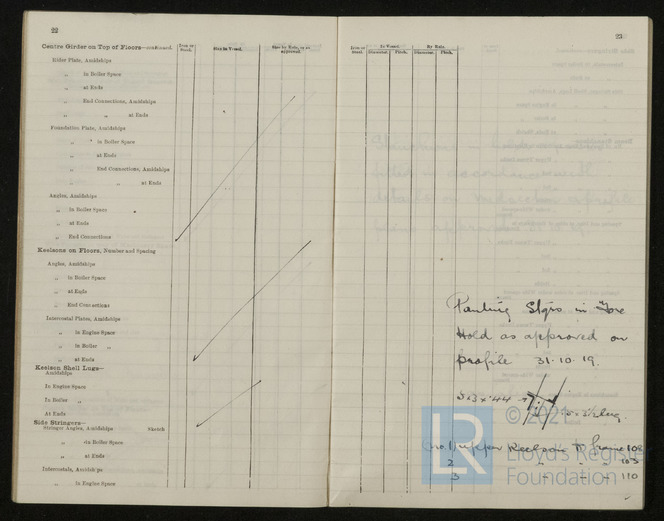 22
Centre Girder on Top of Floors—continued.
Iron or Steel.
Size in Vessel.
Size by Rule, or as approved.
Rider Plate, Amidships
„ in Boiler Space
„ at Ends
„ End Connections, Amidships
„ „ at Ends
Foundation Plate, Amidships
„ in Boiler Space
„ at Ends
„ End Connections, Amidships
„ „ at Ends
Angles, Amidships
„ in Boiler Space
„ at Ends
„ End Connections
Keelsons on Floors, Number and Spacing
Angles, Amidships
„ in Boiler Space
„ at Ends
„ End Connections
Intercostal Plates, Amidships
„ in Engine Space
„ in Boiler „
„ at Ends
Keelson Shell Lugs—
Amidships
In Engine Space
In Boiler „
At Ends
Side Stringers—
Stringer Angles, Amidships Sketch
„ in Boiler Space
„ at Ends
Intercostals, Amidships
„ in Engine Space
23
Iron or Steel.
In Vessel.
By Rule.
Diameter. Pitch. Diameter. Pitch.
Panting Stgrs in Fore
Hold as approved on
profile 31.10.19.
(no. 1) upper Keelson to frame 108
2 „ „ „ 103
3 „ „ „ 110
LR
© 2021
Lloyd's Register
Foundation